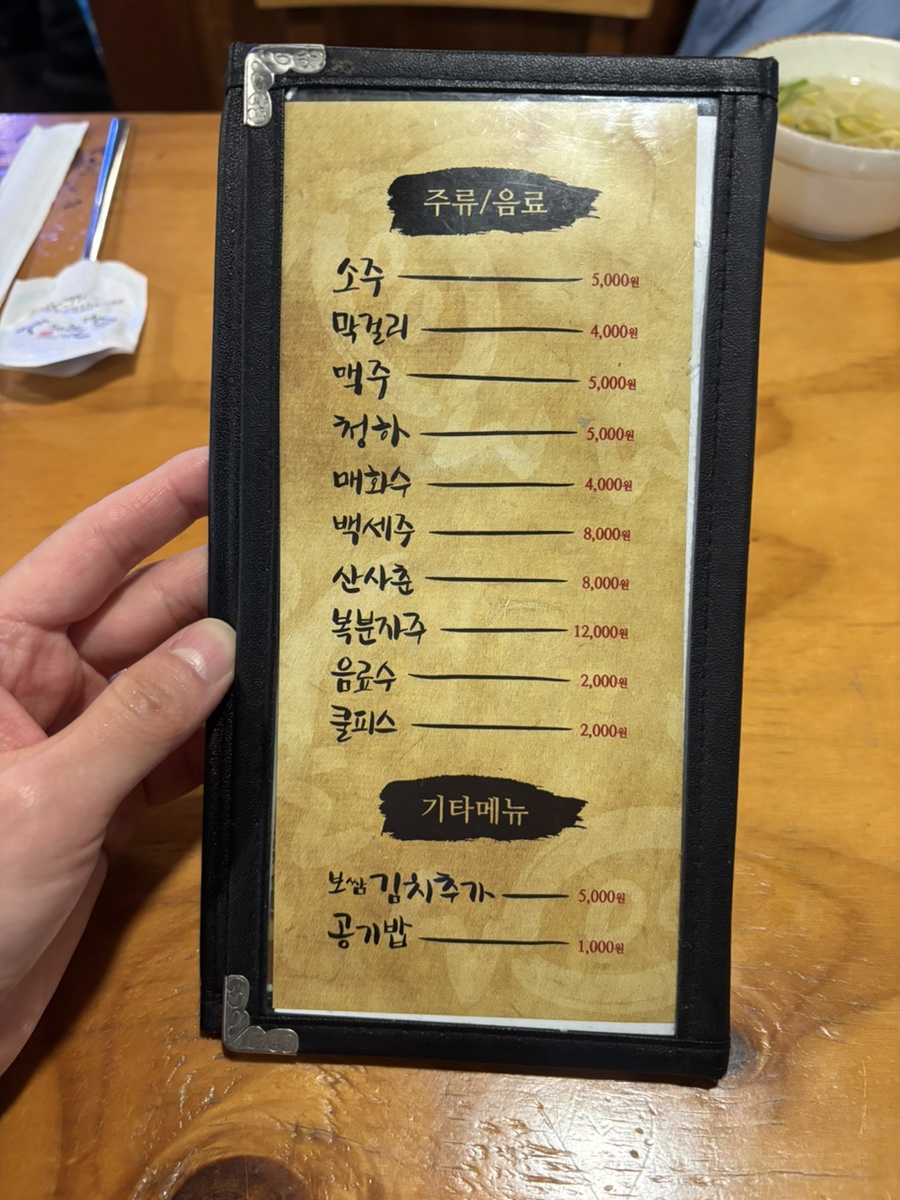 주류/음료
소주 5,000원
막걸리 4,000원
맥주 5,000원
청하 5,000원
매화수 4,000원
백세주 8,000원
산사춘 8,000원
복분자주 12,000원
음료수 2,000원
쿨피스 2,000원
기타메뉴
보쌈김치추가 5,000원
공기밥 1,000원